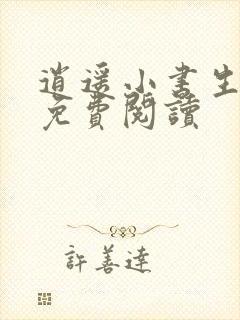 逍遥小書生
免費閱讀
許善達